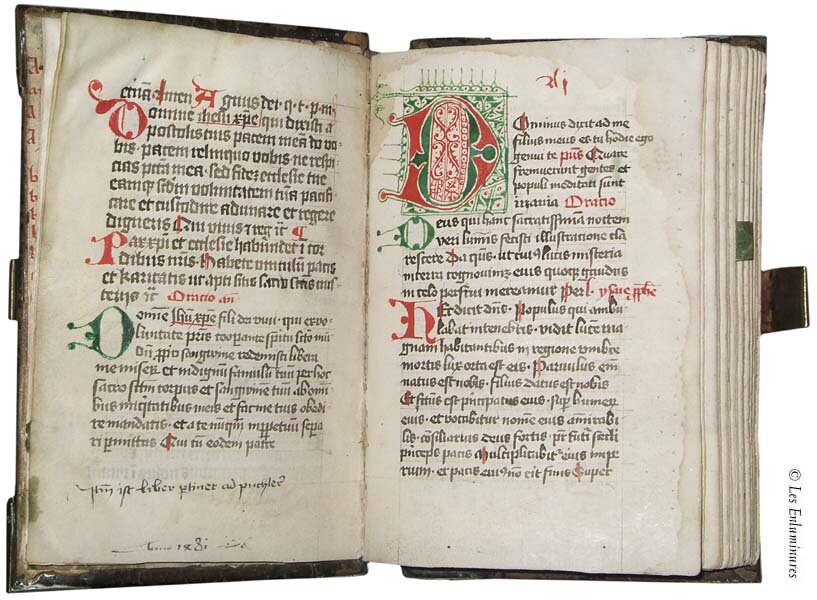 etiā Amen Agnus dei q t p m
Domine ihesu xp̄e qui dixisti a
postolis tuis pacem meā do vo
bis pacem relinquo vobis ne respi
cias pctā mea sed fidez ecclesie tue
eamqz scdm voluntatem tuā pacifi
care et custodire adunare et regere
digneris Qui vivis et reg
Pax xp̄i et ecclesie habundet i cor
dibus nr̄is habete vinculum pacis
et karitatis ut apti sitis sacrosctis mis
teriis Oratio an
Domine Ihū xp̄e fili dei vivi qui ex vo
luntate pr̄is cooperante spū scto mū
dū sanguine redemisti libera
me miserz et indignū famulū tuū per hoc
sacro sctm corpus et sanguinem tuū ab omī
bus iniqtatibus meis et fac me tuis obedi
re mandatis et a te nūqm inppetuum sepa
ri permittas Qui cū eodem patre
Istū ist liber ptinet
Anno
A
A
A
b
b
A j
Dominus dicit ad me
filius meus es tu hodie ego
genui te ps̄ Quare
fremuerunt gentes et
populi meditati sunt
inania Oracio
Deus qui hanc sacratissimā noctem
veri luminis fecisti illustracione cla
rescere Da qs ut cuius lucis misteria
in terra cognovimz eius quoqz gaudiis
in celo perfrui mereamur Per
Hec dicit dn̄s Populus qui ambu
labat in tenebris vidit lucem ma
gnam habitantibus in regione umbre
mortis lux orta est eis Parvulus em̄
natus est nobis filius datus est nobis
Et factus est pncipatus eius sup humerz
eius et vocabitur nomē eius amirabi
lis consiliarius deus fortis pr̄ futi seculi
princeps pacis Multiplicabitur eius impe
rium et pacis eius nō erit finis Super
© Les Enluminures